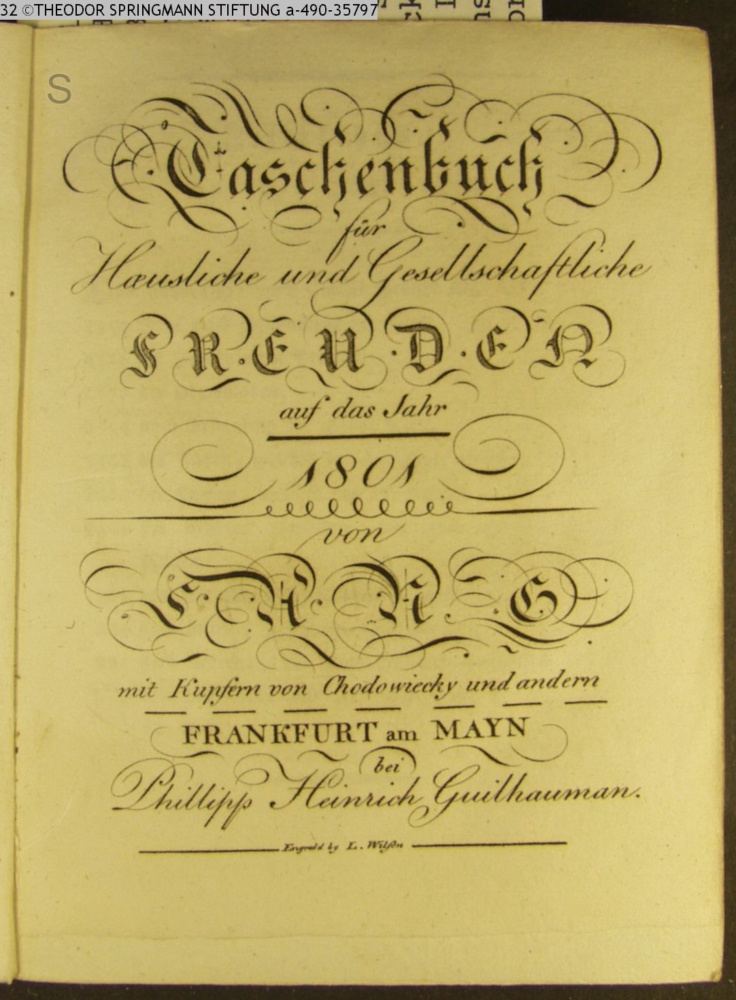 32 ©THEODOR SPRINGMANN STIFTUNG a-490-35797
S
Taschenbuch
für
Hæusliche und Gesellschaftliche
FREUDEN
auf das Jahr
1801
von
L·A·N·G
mit Kupfern von Chodowiecky und andern
FRANKFURT am MAYN
bei
Phillipp Heinrich Guilhauman.
Engrav'd by L. Wilson